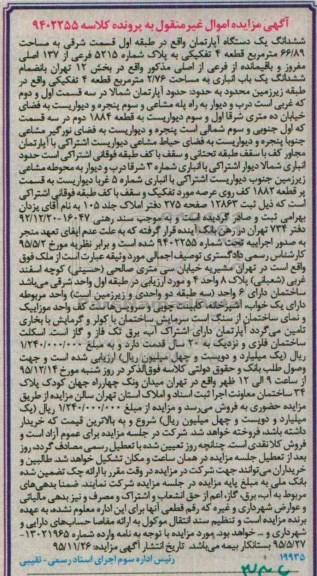 آگهی مزایده اموال غیرمنقول به پرونده کلاسه ۹۴۰۲۲۵۵
ششدانگ یک دستگاه آپارتمان واقع در طبقه اول قسمت شرقی به مساحت
۶۶/۸۹ مترمربع قطعه ۴ تفکیکی به پلاک شماره ۵۲۱۵ فرعی از ۱۳۷ اصلی
مفروز و باقیمانده از فرعی از اصلی مذکور واقع در بخش ۱۲ تهران بانضمام
ششدانگ یک باب انباری به مساحت ۲/۷۶ مترمربع قطعه ۴ تفکیکی واقع در
طبقه زیرزمین محدود به حدود: حدود آپارتمان شمالا در سه قسمت اول و دوم
که غربی است درب و دیوار به راه پله مشاعی و سوم پنجره و دیواریست به فضای
خیابان ده متری شرقا اول و سوم دیواریست به قطعه ۱۸۸۴ دوم در سه قسمت
که اول جنوبی و سوم شمالی است پنجره و دیواریست به فضای نورگیر مشاعی
جنوبا پنجره و دیواریست به فضای حیاط مشاعی دیواریست اشتراکی با آپارتمان
مجاور کف با سقف طبقه تحتانی و سقف با کف طبقه فوقانی اشتراکی است حدود
انباری شمالا دیوار اشتراکی با انباری شماره ۳ شرقا درب و دیوار به محوطه مشاعی
زیرزمین جنوب دیواریست اشتراکی با انباری شماره ۵ غربا دیواریست به قسمت
پر قطعه ۱۸۸۲ کف روی عرصه مورد تفکیک و سقف با کف طبقه فوقانی اشتراکی
است که ذیل ثبت ۱۲۸۶۳ صفحه ۲۷۵ دفتر املاک جلد ۱۰۵ به نام آقای یزدان
بهرامی ثبت و صادر گردیده است و به موجب سند رهنی ۱۶۰۴۷-۹۲/۱۲/۲۰
دفتر ۷۳۴ تهران در رهن بانک آینده قرار گرفته که به علت عدم ایفای تعهد منجر
به صدور اجراییه تحت شماره ۹۴۰۲۲۵۵ شده است و برابر نظریه مورخ ۹۵/۵/۲
کارشناس رسمی دادگستری توصیف اجمالی مورد وثیقه عبارت است از ملک فوق
واقع است در تهران مشیریه خیابان سی متری صالحی (حسینی) کوچه اسفند
غربی (شعیبی) پلاک ۸ واحد ۴ و مورد ارزیابی در طبقه اول واحد شرقی می‌باشد
ساختمان دارای ۶ واحد (سه طبقه دو واحدی و زیرزمین است) واحد مربوطه
دارای یک خوابه آشپزخانه کابینت چوبی و سرویس‌هاست کف واحد موزاییک
و نمای ساختمان از سنگ است سرمایش ساختمان با کولر و گرمایش با بخاری
تامین می‌گردد آپارتمان دارای اشتراک آب، برق تک فاز و گاز است. اسکلت
ساختمان فلزی و نزدیک به ۲۰ سال قدمت دارد و به مبلغ ۱/۲۴۰/۰۰۰/۰۰۰
ریال (یک میلیارد و دویست و چهل میلیون ریال) ارزیابی شده است و جهت
وصول طلب بانک و حقوق دولتی کلاسه فوق‌الذکر در روز شنبه مورخ ۹۵/۱۲/۱۴
از ساعت ۹ الی ۱۲ ظهر واقع در تهران میدان ونک چهارراه جهان کودک پلاک
۲۴ ساختمان معاونت اجرا ثبت اسناد و املاک استان تهران سالن مزایده از طریق
مزایده حضوری به فروش می‌رسد و مزایده از مبلغ ۱/۲۴۰/۰۰۰/۰۰۰ ریال (یک
میلیارد و دویست و چهل میلیون ریال) شروع و به بالاترین قیمت که خریدار
داشته باشد، فروخته خواهد شد. شرکت در جلسه مزایده برای عموم آزاد است و
فروش کلا نقدی است. چنانچه روز تعیین شده با تعطیل رسمی مصادف گردد، روز
بعد از تعطیل جلسه مزایده در همان ساعت و مکان تشکیل خواهد شد. طالبین و
خریداران می‌توانند جهت شرکت در مزایده در وقت مقرر با ارائه چک تضمین شده
بانک ملی به مبلغ پایه مزایده در جلسه مزایده شرکت نمایند. ضمنا بدهی‌های
مربوط به آب، برق، گاز، اعم از حق انشعاب و اشتراک و مصرف و نیز بدهی مالیاتی
و عوارض شهرداری و غیره که رقم قطعی آنها برای این اداره معلوم نشده، به عهده
برنده مزایده است و تنظیم سند انتقال موکول به ارائه مفاصا حساب‌های دارایی و
شهرداری و ... خواهد بود. مورد مزایده با توجه به نامه وارده شماره ۲۱۹۶۵-۱۳۰
۹۵/۵/۲۷ بستانکار بیمه می‌باشد. تاریخ انتشار آگهی مزایده: ۹۵/۱۱/۲۶
۱۹۹۳۵ رئیس اداره سوم اجرای اسناد رسمی - نقیبی